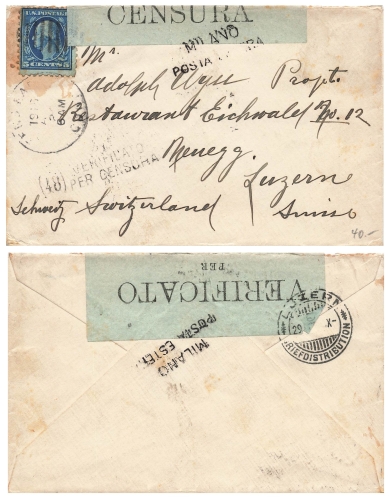 CENSURA
U.S. POSTAGE
5 CENTS 5
MILANO
POSTA
Mr.
Adolph Propt.
Restaurant Eichwald No. 12
VERIFICATO
(48) PER CENSURA
Luzern
Schweiz Switzerland Suiss
40.-
PER
VERIFICATO
MILANO
POSTA ESTERA
LUZERN
29 X
BRIEFDISTRIBUTION